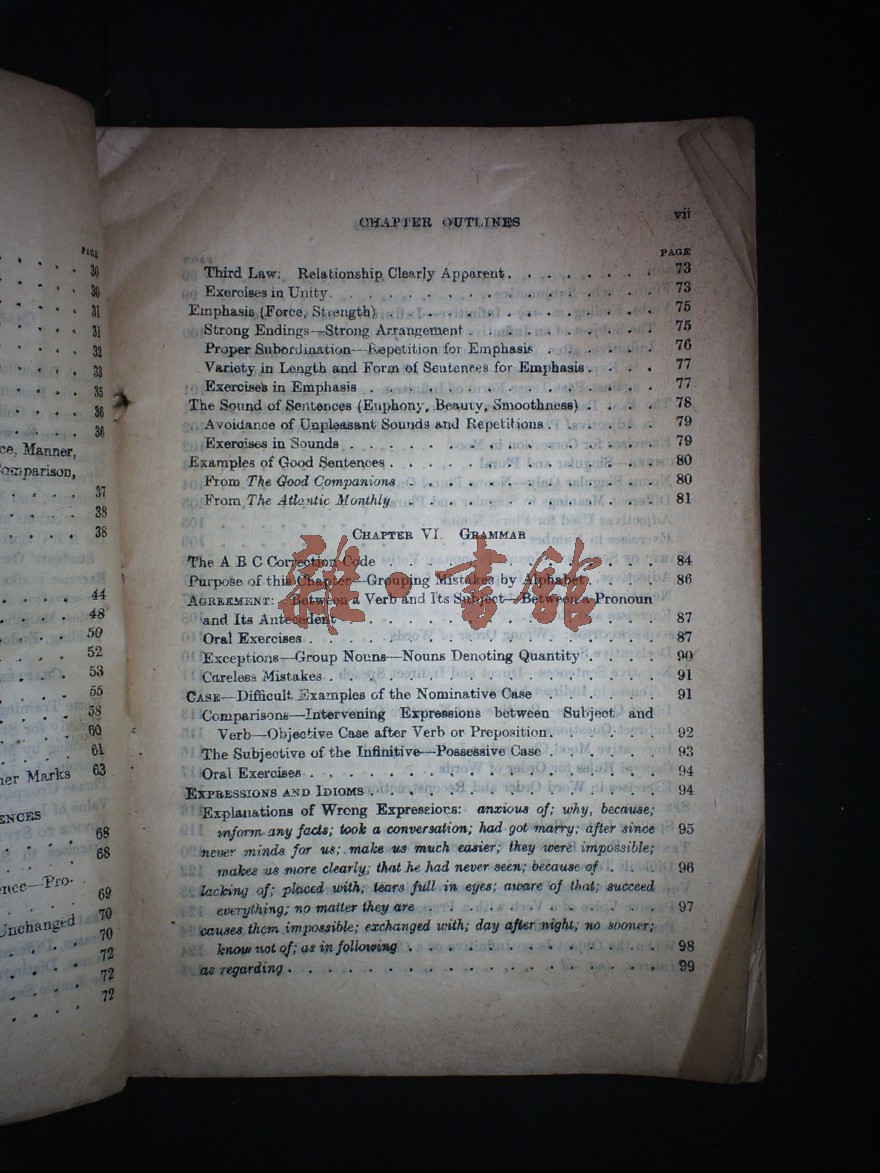 PAGE
30
30
31
31
32
33
35
36
36
ce, Manner,
Comparison,
37
38
38
44
48
50
52
53
55
58
60
61
her Marks 63
ENCES
68
68
ence—Pro-
69
Unchanged 70
70
72
72
72
CHAPTER OUTLINES vii
PAGE
Third Law: Relationship Clearly Apparent. . . . . . . . 73
Exercises in Unity. . . . . . . . . . . . . . . . . . 73
Emphasis (Force, Strength) . . . . . . . . . . . . . . . 75
Strong Endings—Strong Arrangement . . . . . . . . . . 75
Proper Subordination—Repetition for Emphasis . . . . . . 76
Variety in Length and Form of Sentences for Emphasis. . . . 77
Exercises in Emphasis . . . . . . . . . . . . . . . . 77
The Sound of Sentences (Euphony, Beauty, Smoothness) . . . . 78
Avoidance of Unpleasant Sounds and Repetitions . . . . . . 79
Exercises in Sounds . . . . . . . . . . . . . . . . . 79
Examples of Good Sentences . . . . . . . . . . . . . . . 80
From The Good Companions . . . . . . . . . . . . . . 80
From The Atlantic Monthly . . . . . . . . . . . . . . 81
CHAPTER VI GRAMMAR
The A B C Correction Code . . . . . . . . . . . . . . . 84
Purpose of this Chapter—Grouping Mistakes by Alphabet. . . . 86
AGREEMENT: Between a Verb and Its Subject—Between a Pronoun
and Its Antecedent . . . . . . . . . . . . . . . . . 87
Oral Exercises . . . . . . . . . . . . . . . . . . . 87
Exceptions—Group Nouns—Nouns Denoting Quantity . . . . 90
Careless Mistakes . . . . . . . . . . . . . . . . . . 91
CASE—Difficult Examples of the Nominative Case . . . . . . 91
Comparisons—Intervening Expressions between Subject and
Verb—Objective Case after Verb or Preposition. . . . . . 92
The Subjective of the Infinitive—Possessive Case . . . . . . 93
Oral Exercises . . . . . . . . . . . . . . . . . . . 94
EXPRESSIONS AND IDIOMS . . . . . . . . . . . . . . . . 94
Explanations of Wrong Expressions: anxious of; why, because;
inform any facts; took a conversation; had got marry; after since 95
never minds for us; make us much easier; they were impossible;
makes us more clearly; that he had never seen; because of . . . 96
lacking of; placed with; tears full in eyes; aware of that; succeed
everything; no matter they are . . . . . . . . . . . . . 97
causes them impossible; exchanged with; day after night, no sooner;
know not of; as in following . . . . . . . . . . . . . . 98
as regarding . . . . . . . . . . . . . . . . . . . . . 99
雜·書館